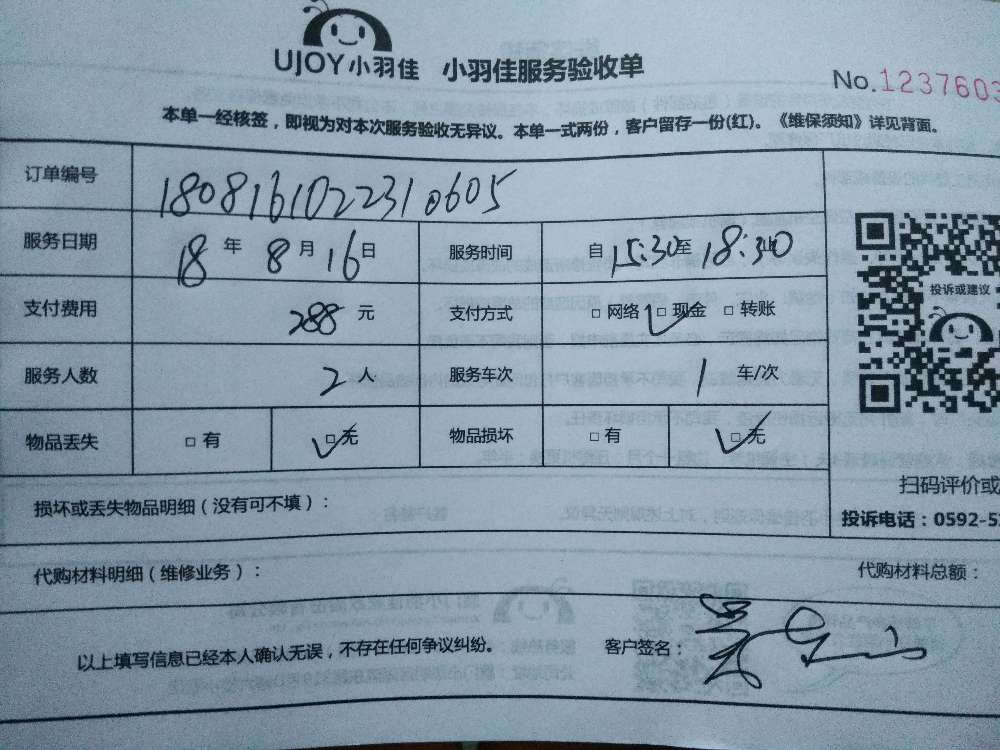 UJOY小羽佳 小羽佳服务验收单
No.1237603
本单一经核签，即视为对本次服务验收无异议。本单一式两份，客户留存一份(红)。《维保须知》详见背面。
订单编号 1808161022310605
服务日期 18 年 8 月 16 日 服务时间 自 15:30 至 18:30 止
支付费用 288 元 支付方式 □ 网络 □ 现金 □ 转账
投诉或建议
服务人数 2 人 服务车次 1 车/次
物品丢失 □ 有 □ 无 物品损坏 □ 有 □ 无
扫码评价或
损坏或丢失物品明细（没有可不填）：
投诉电话：0592-5
代购材料明细（维修业务）： 代购材料总额：
以上填写信息已经本人确认无误，不存在任何争议纠纷。 客户签名：